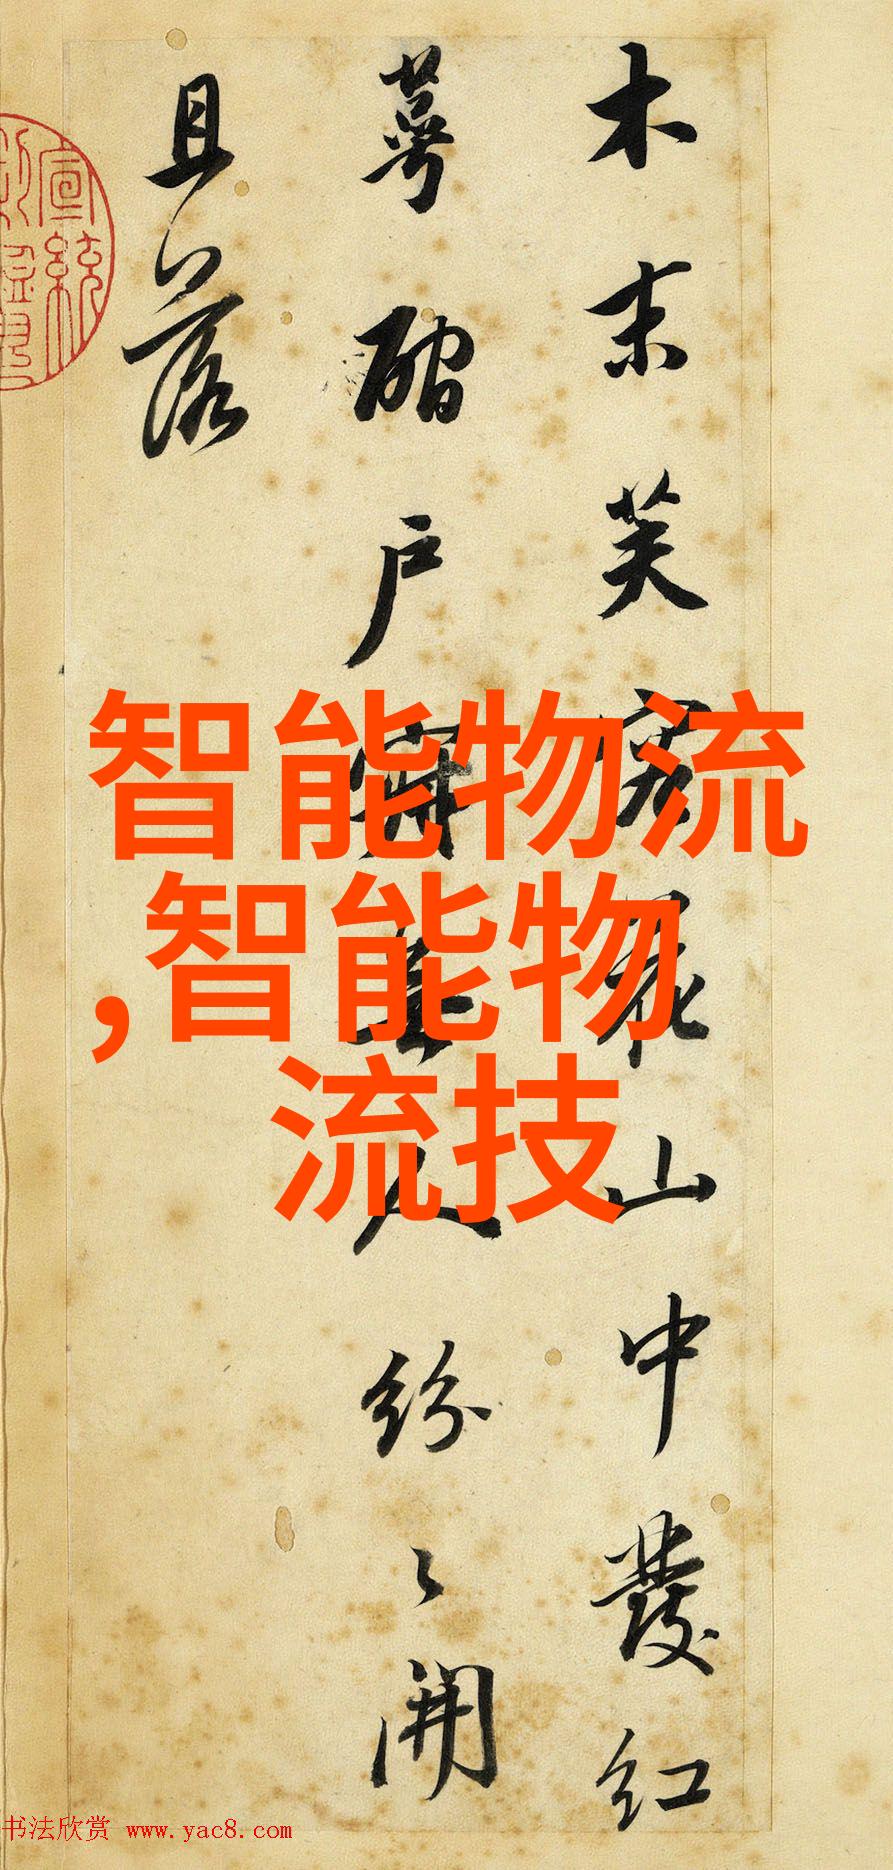 木末芙蓉花山中發紅
萼磵戶寂無人紛々開
且落
智能物流
,智能物
流技
宣統
书法欣赏 www.yac8.com